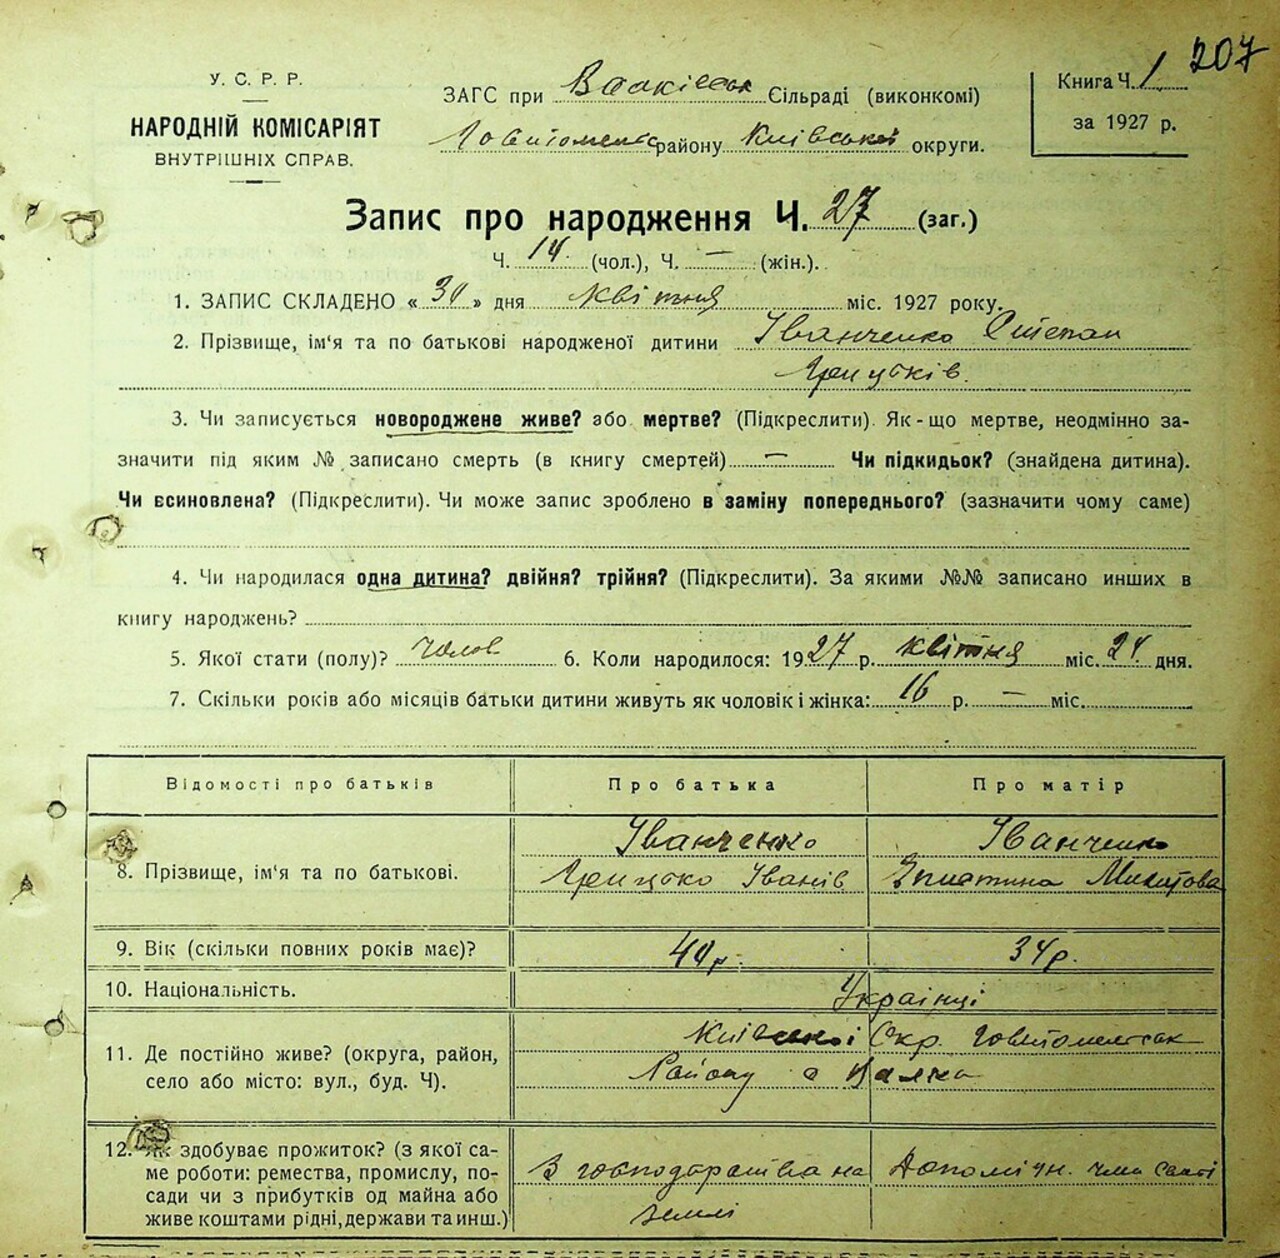 207
У. С. Р. Р.
НАРОДНІЙ КОМІСАРІЯТ
ВНУТРІШНІХ СПРАВ.
ЗАГС при Сільраді (виконкомі)
району Київської округи.
Книга Ч. 1
за 1927 р.
Запис про народження Ч. 27 (заг.)
Ч. 14 (чол.), Ч. — (жін.).
1. ЗАПИС СКЛАДЕНО « 30 » дня квітня міс. 1927 року.
2. Прізвище, ім'я та по батькові народженої дитини Іванченко Степан
Грицьків.
3. Чи записується новороджене живе? або мертве? (Підкреслити). Як-що мертве, неодмінно за-
значити під яким № записано смерть (в книгу смертей) — Чи підкидьок? (знайдена дитина).
Чи всиновлена? (Підкреслити). Чи може запис зроблено в заміну попереднього? (зазначити чому саме)
4. Чи народилася одна дитина? двійня? трійня? (Підкреслити). За якими №№ записано инших в
книгу народжень?
5. Якої стати (полу)? Чолов 6. Коли народилося: 1927 р. квітня міс. 24 дня.
7. Скільки років або місяців батьки дитини живуть як чоловік і жінка: 16 р. — міс.
Відомості про батьків
Про батька
Про матір
8. Прізвище, ім'я та по батькові.
Іванченко
Грицько Іванів
Іванченко
Микитова
9. Вік (скільки повних років має)?
40 р.
34 р.
10. Національність.
Українці
11. Де постійно живе? (округа, район,
село або місто: вул., буд. Ч).
Київської Окр.
Району
12. Як здобуває прожиток? (з якої са-
ме роботи: ремества, промислу, по-
сади чи з прибутків од майна або
живе коштами рідні, держави та инш.)
З господарства на
землі
Допоміжн. член